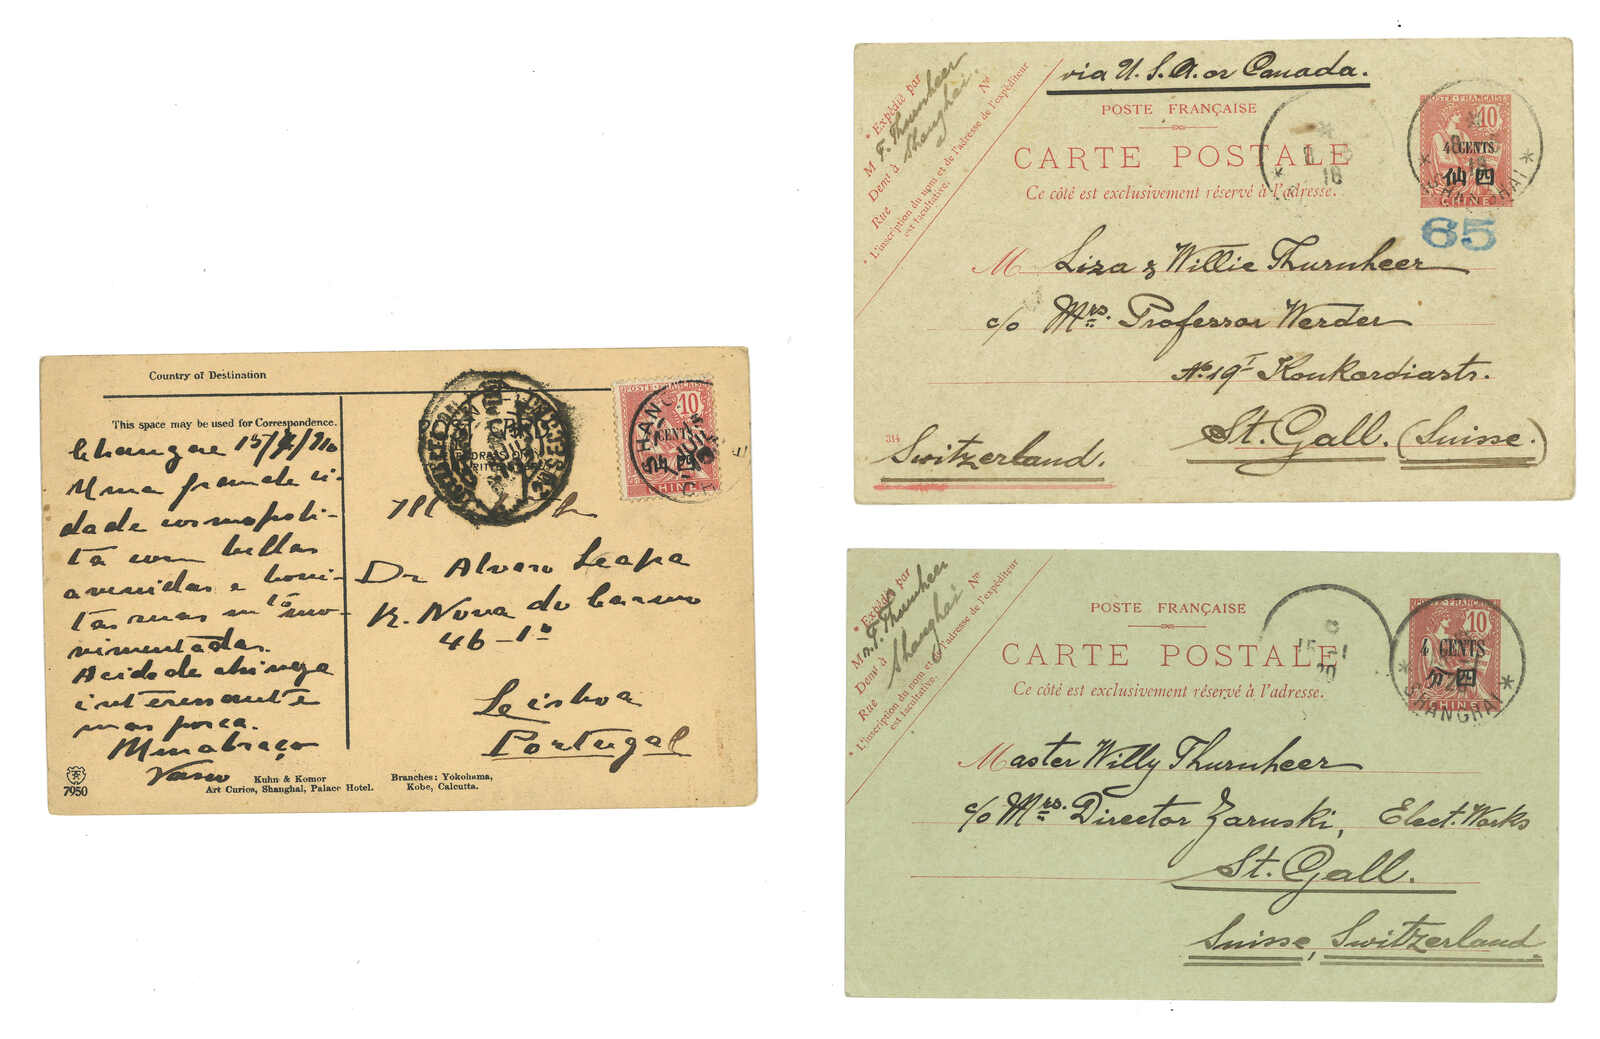 Country of Destination
This space may be used for Correspondence.
15/7/910
Uma grande ci-
dade cosmopoli-
ta com bellas
avenidas e boni-
tas mas mto mo-
vimentadas.
A cidade chineza
interessante
mas porca.
Um abraço
Vasco
7950
Kuhn & Komor
Art Curios, Shanghai, Palace Hotel.
Branches: Yokohama,
Kobe, Calcutta.
POSTE FRANÇAISE
10
CENTS
CHINE
Dr Alvaro
R. Nova do Carmo
46-1º
Lisboa
Portugal
via U. S. A. or Canada.
POSTE FRANÇAISE
CARTE POSTALE
Ce côté est exclusivement réservé à l'adresse.
* Expédié par
M F. Thurnheer
Demt à Shanghai
Rue Nº
* L'inscription du nom et de l'adresse de l'expéditeur
est facultative.
POSTE FRANÇAISE
10
4 CENTS
仙四
CHINE
SHANGHAI
18
65
M Liza & Willie Thurnheer
c/o Mrs. Professor Werder
No 19 Konkordiastr.
St. Gall. (Suisse.)
314
Switzerland.
POSTE FRANÇAISE
CARTE POSTALE
Ce côté est exclusivement réservé à l'adresse.
* Expédié par
M F. Thurnheer
Demt à Shanghai
Rue Nº
* L'inscription du nom et de l'adresse de l'expéditeur
est facultative.
POSTE FRANÇAISE
10
4 CENTS
四
CHINE
SHANGHAI
20
Master Willy Thurnheer
c/o Mrs. Director Zaruski, Elect. Works
St. Gall.
Suisse, Switzerland.